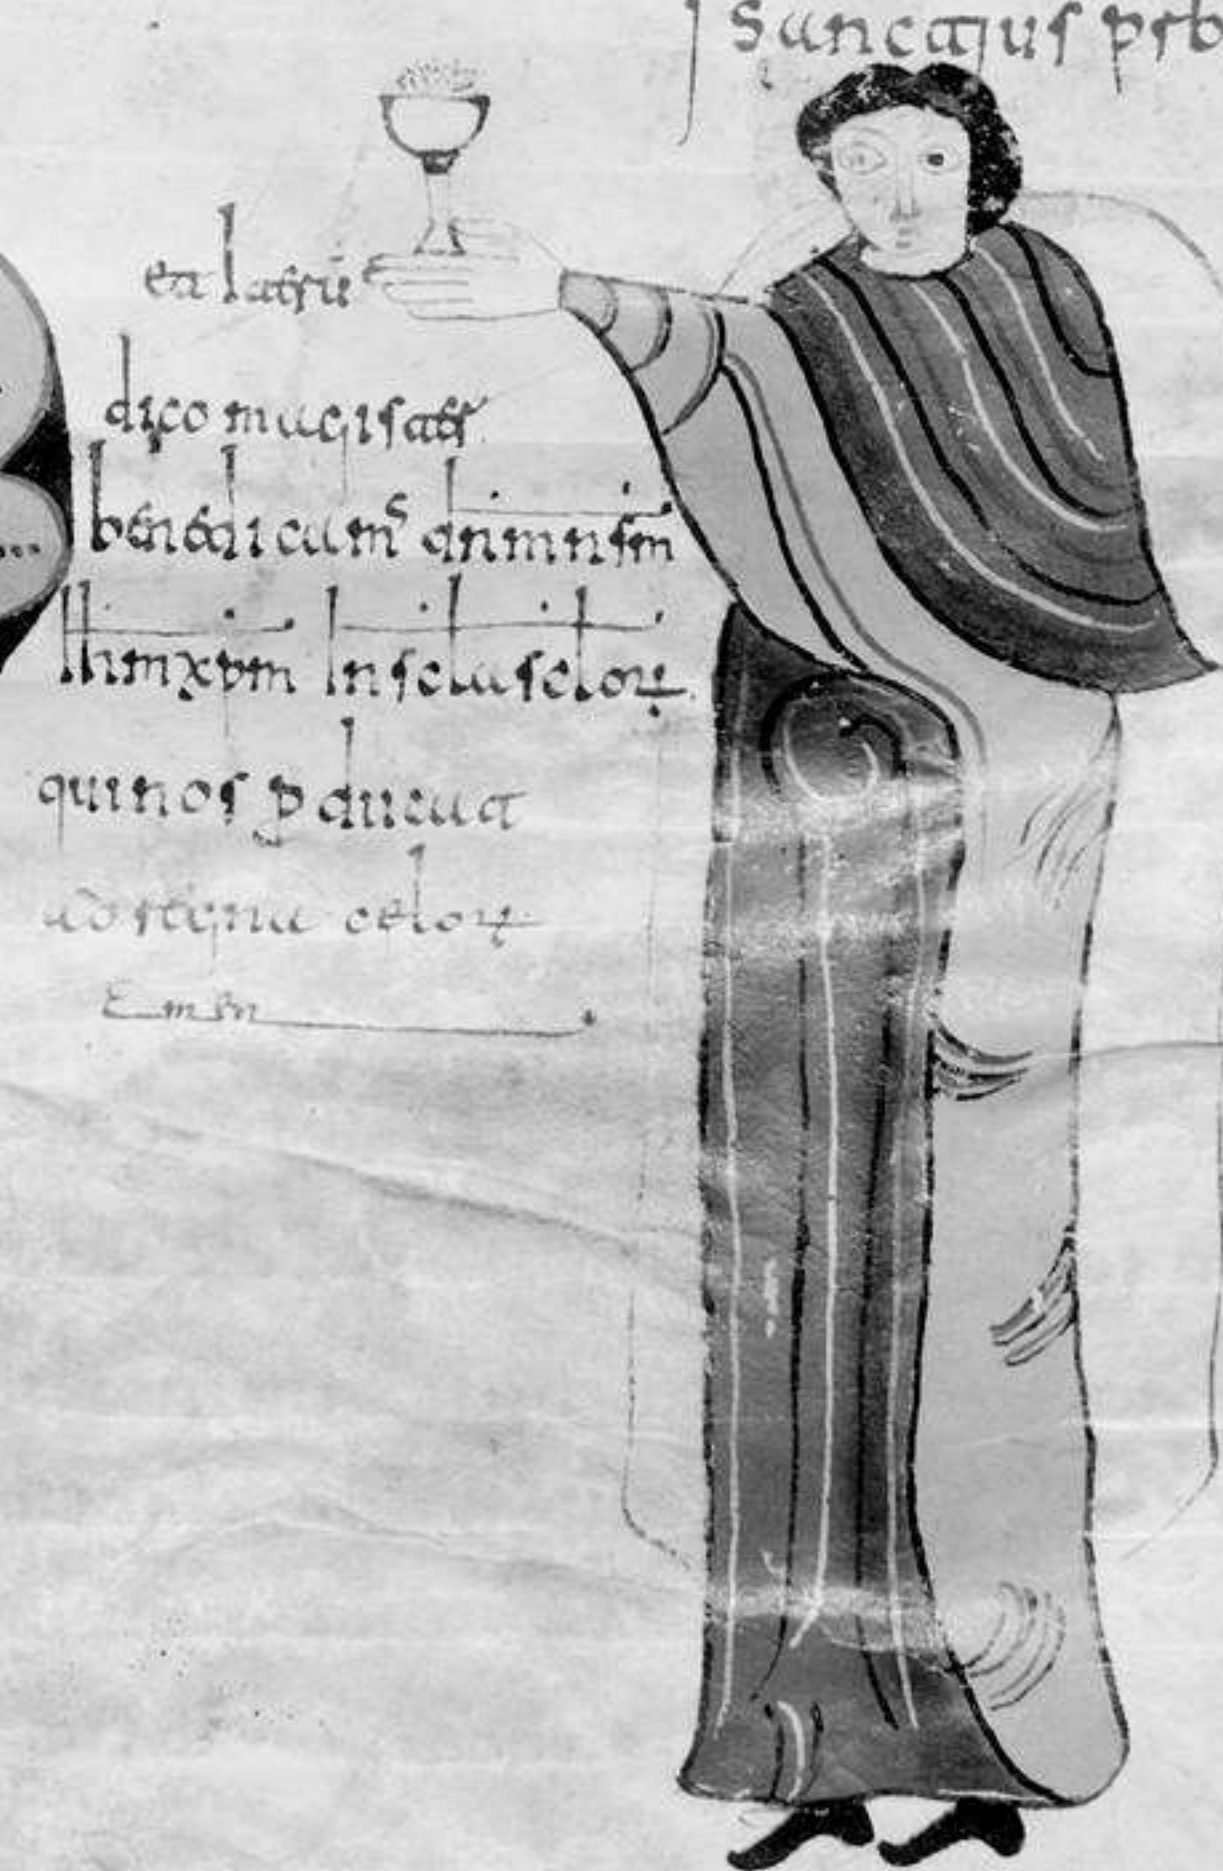 Sanctius prsb
et Iterū
dico magister
benedicams dnmnsm
Ihmxpm In scla scloꝝ
qui nos ꝑducat
ad regna celoꝝ
Emen